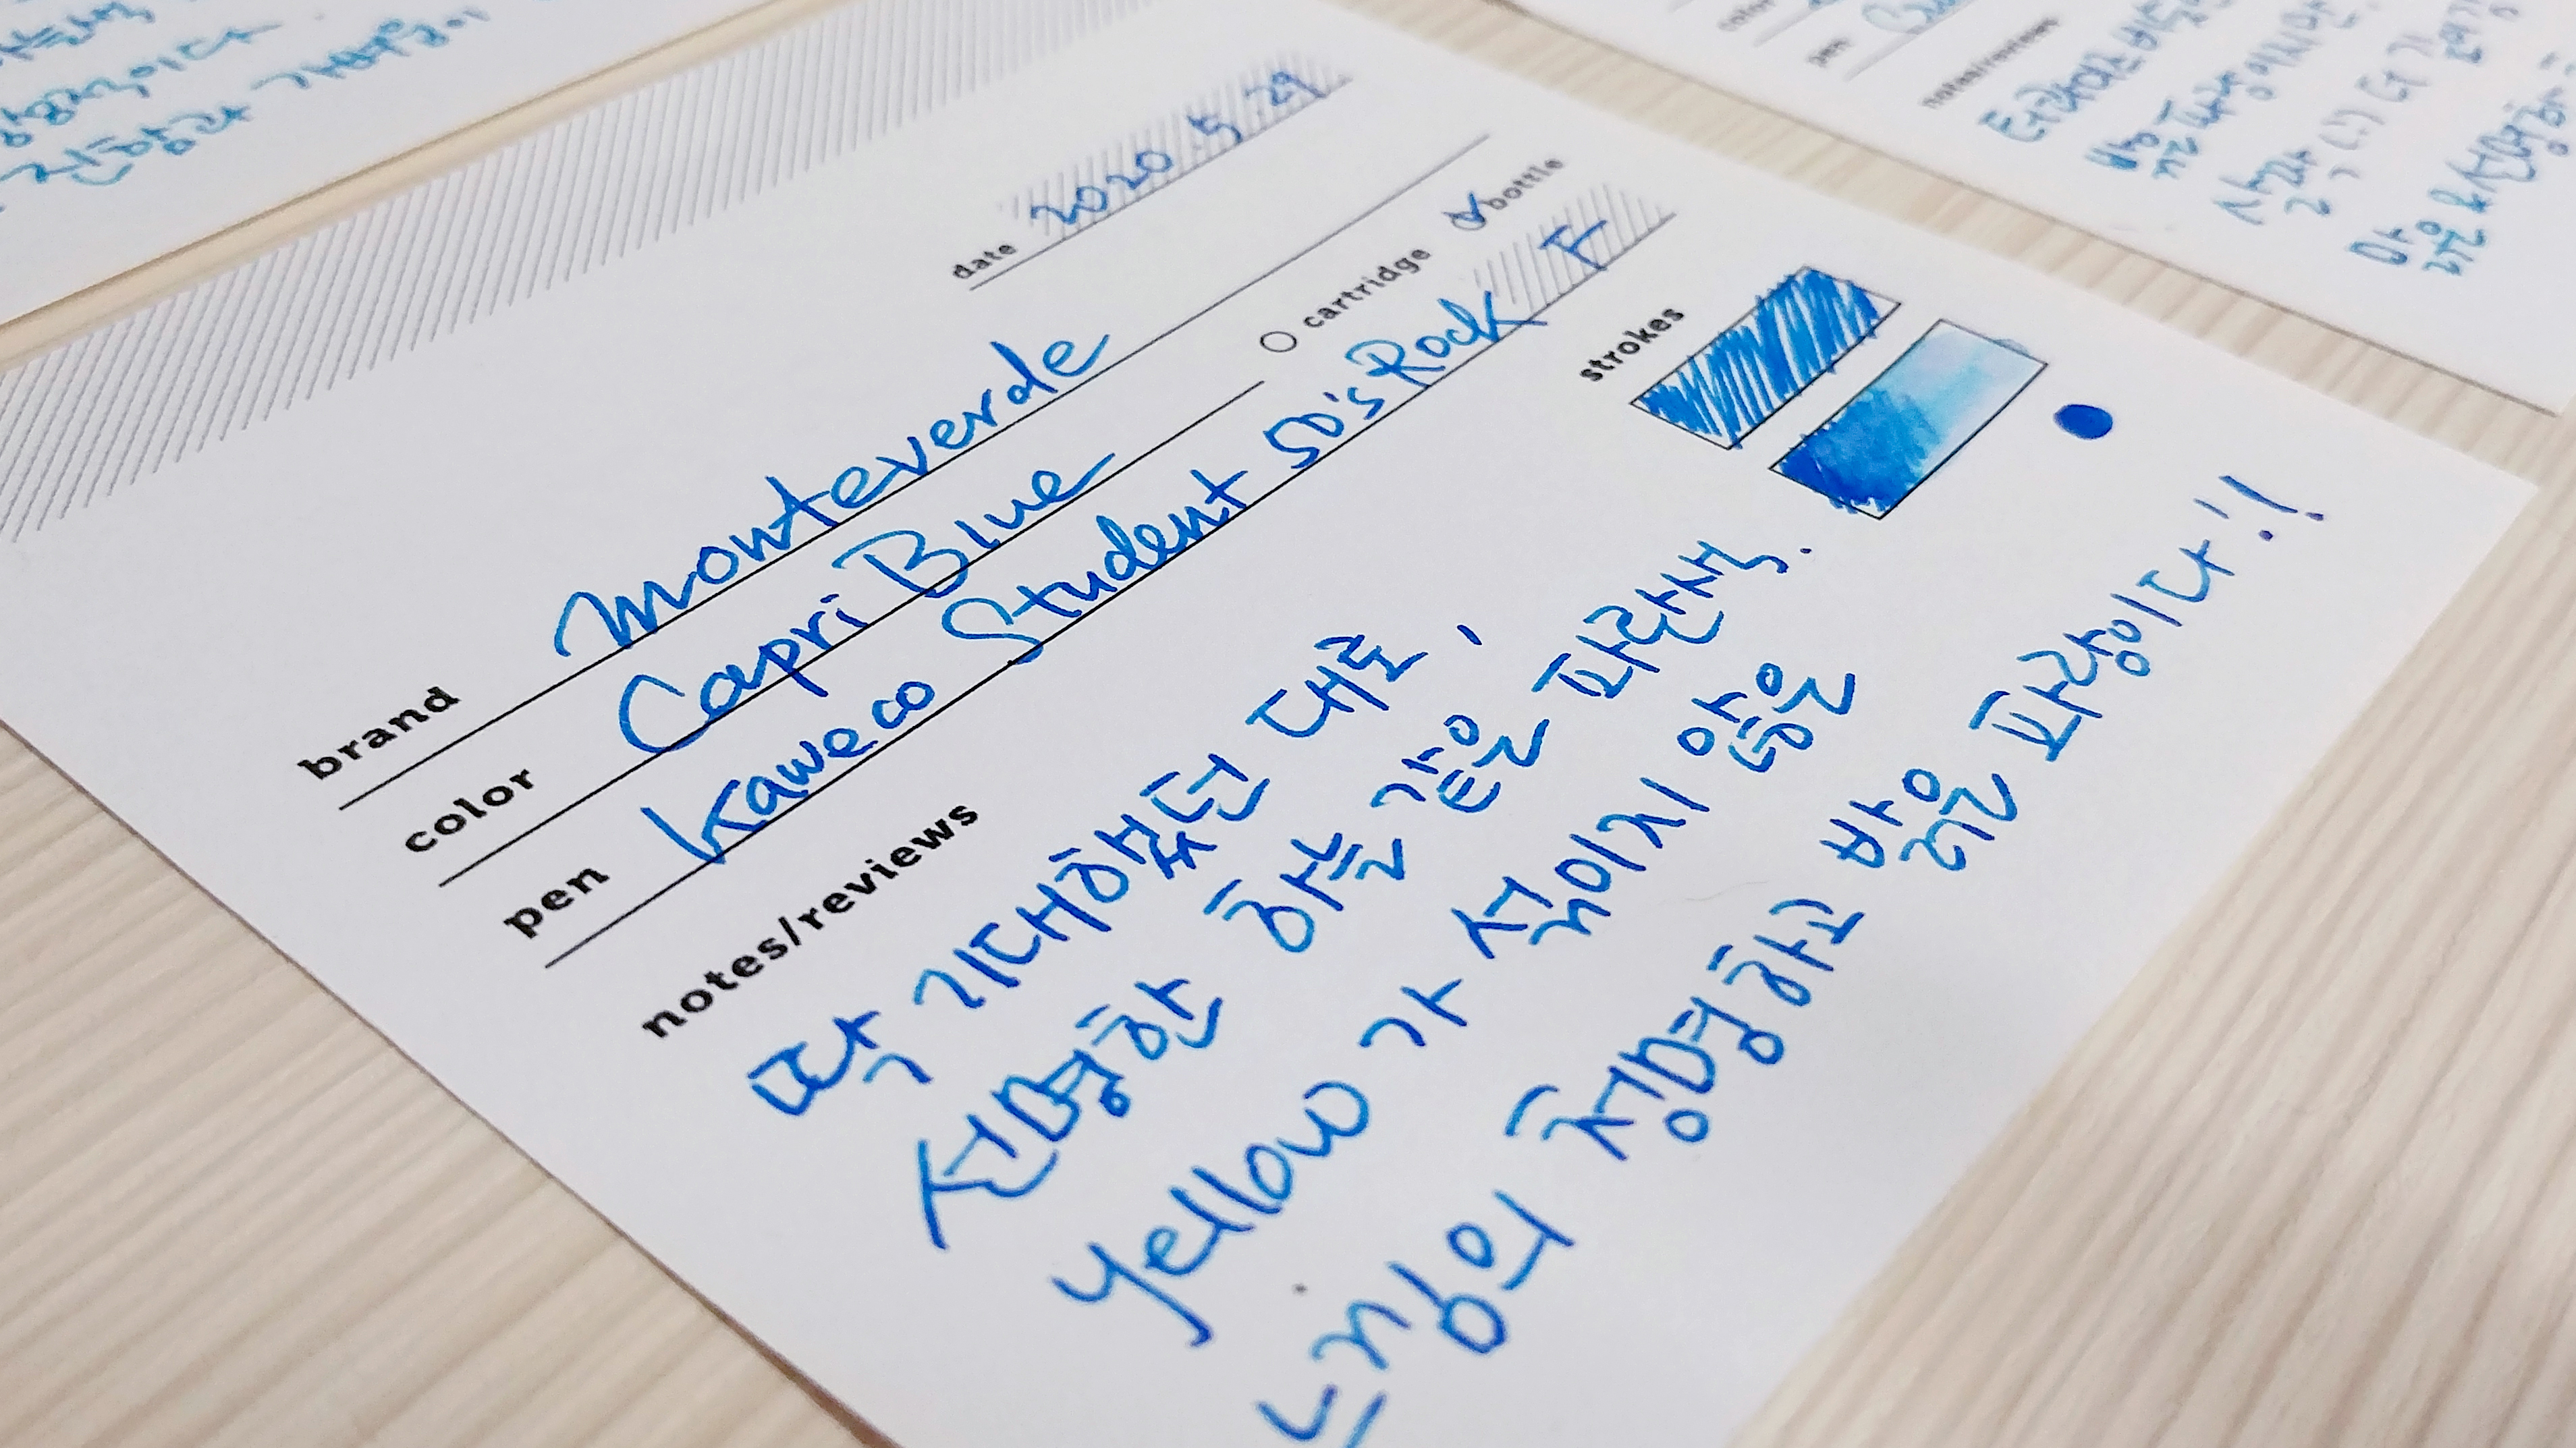 date 2020.5.29
brand Monteverde
color Capri Blue cartridge bottle
pen Kaweco Student 50's Rock F
strokes
notes/reviews
딱 기대했던 대로,
선명한 하늘 같은 파란색.
Yellow가 섞이지 않은
느낌의 청명하고 밝은 파랑이다!!
color
pen
notes/reviews
밝은 파랑이지만